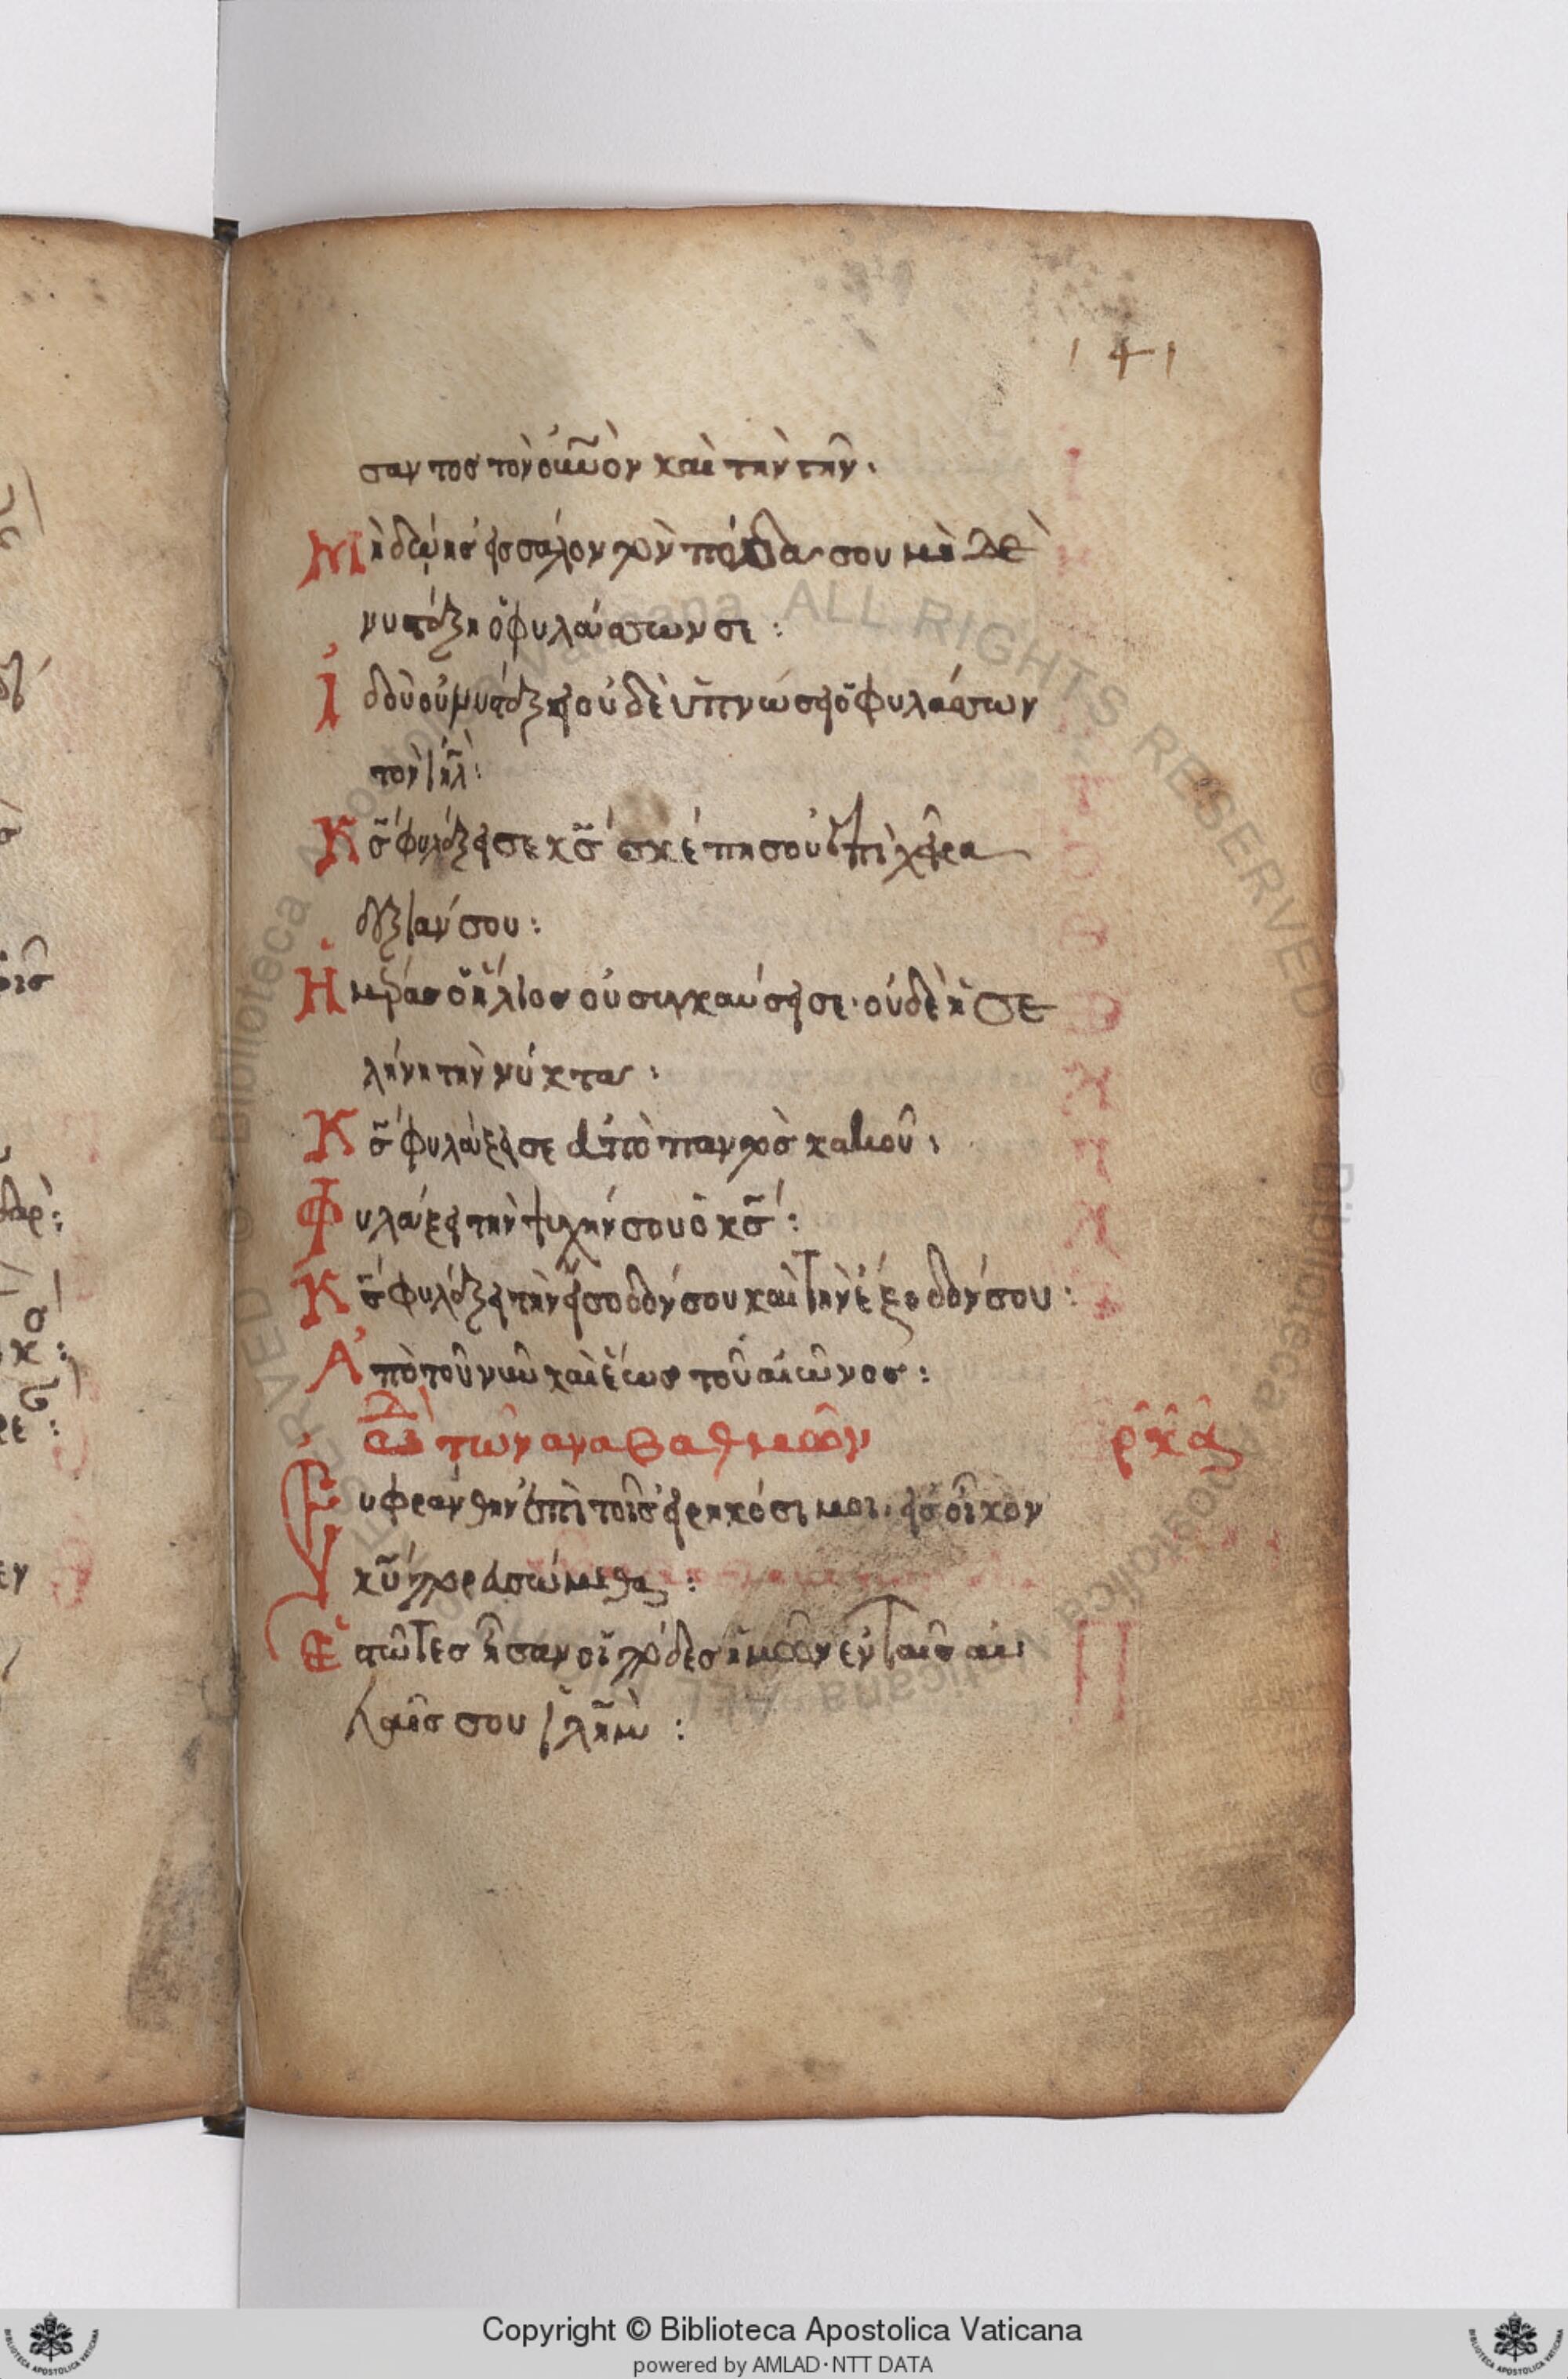 141
σαντος τὸν οὐνὸν καὶ τὴν γῆν.
Μὴ δώης εἰς σάλον τὸν πόδα σου μὴ δὲ
νυστάξη ὁ φυλάσσων σε :
Ἰδοὺ οὐ νυστάξει οὐδὲ ὑπνώσει ὁ φυλάσσων
τὸν ἰηλ :
Κς φυλάξει σε κς σκέπη σου ἐπὶ χεῖρα
δεξιάν σου :
Ἡμέρας ὁ ἥλιος οὐ συγκαύσει σε· οὐδὲ ἡ σε
λήνη τὴν νύκτα :
Κς φυλάξει σε ἀπὸ παντὸς κακοῦ :
Φυλάξει τὴν ψυχήν σου ὁ κς :
Κς φυλάξει τὴν εἴσοδόν σου καὶ τὴν ἔξοδόν σου :
Ἀπὸ τοῦ νῦν καὶ ἕως τοῦ αἰῶνος :
ὠδὴ τῶν αναβαθμῶν ρκα
Εὐφράνθην ἐπὶ τοῖς εἰρηκόσι μοι· εἰς οἶκον
κυ πορευσώμεθα :
Ἑστῶτες ἦσαν οἱ πόδες ἡμῶν ἐν ταῖς αὐ
λαῖς σου ιλημ :
Copyright © Biblioteca Apostolica Vaticana
powered by AMLAD·NTT DATA